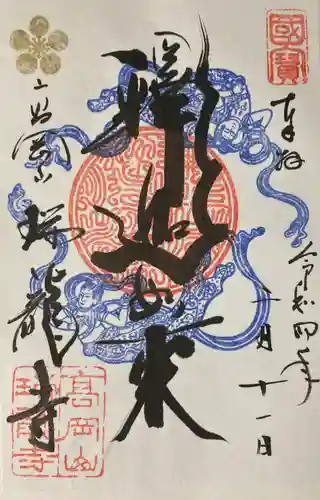 國寳
奉拝
令和四年
十一月十一日
釋迦如来
高岡山
瑞龍寺
高岡山
瑞龍寺